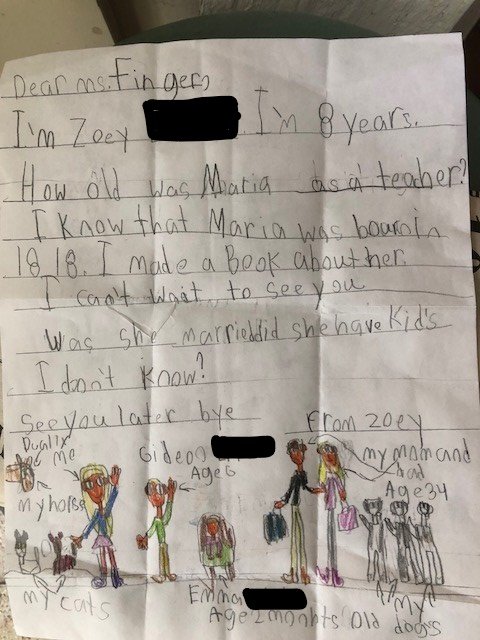 Dear ms. Fingers
I'm Zoey . I'm 8 years.
How old was Maria as a teacher?
I know that Maria was bourn in
1818. I made a Book about her.
I can't wait to see you
was she married did she have Kid's
I don't know?
See you later bye
From Zoey
Me
Gideon
Age 6
my Mom and
Dad
Age 34
My horse
my cats
Emma
Age 2 monhts old
My
dogs